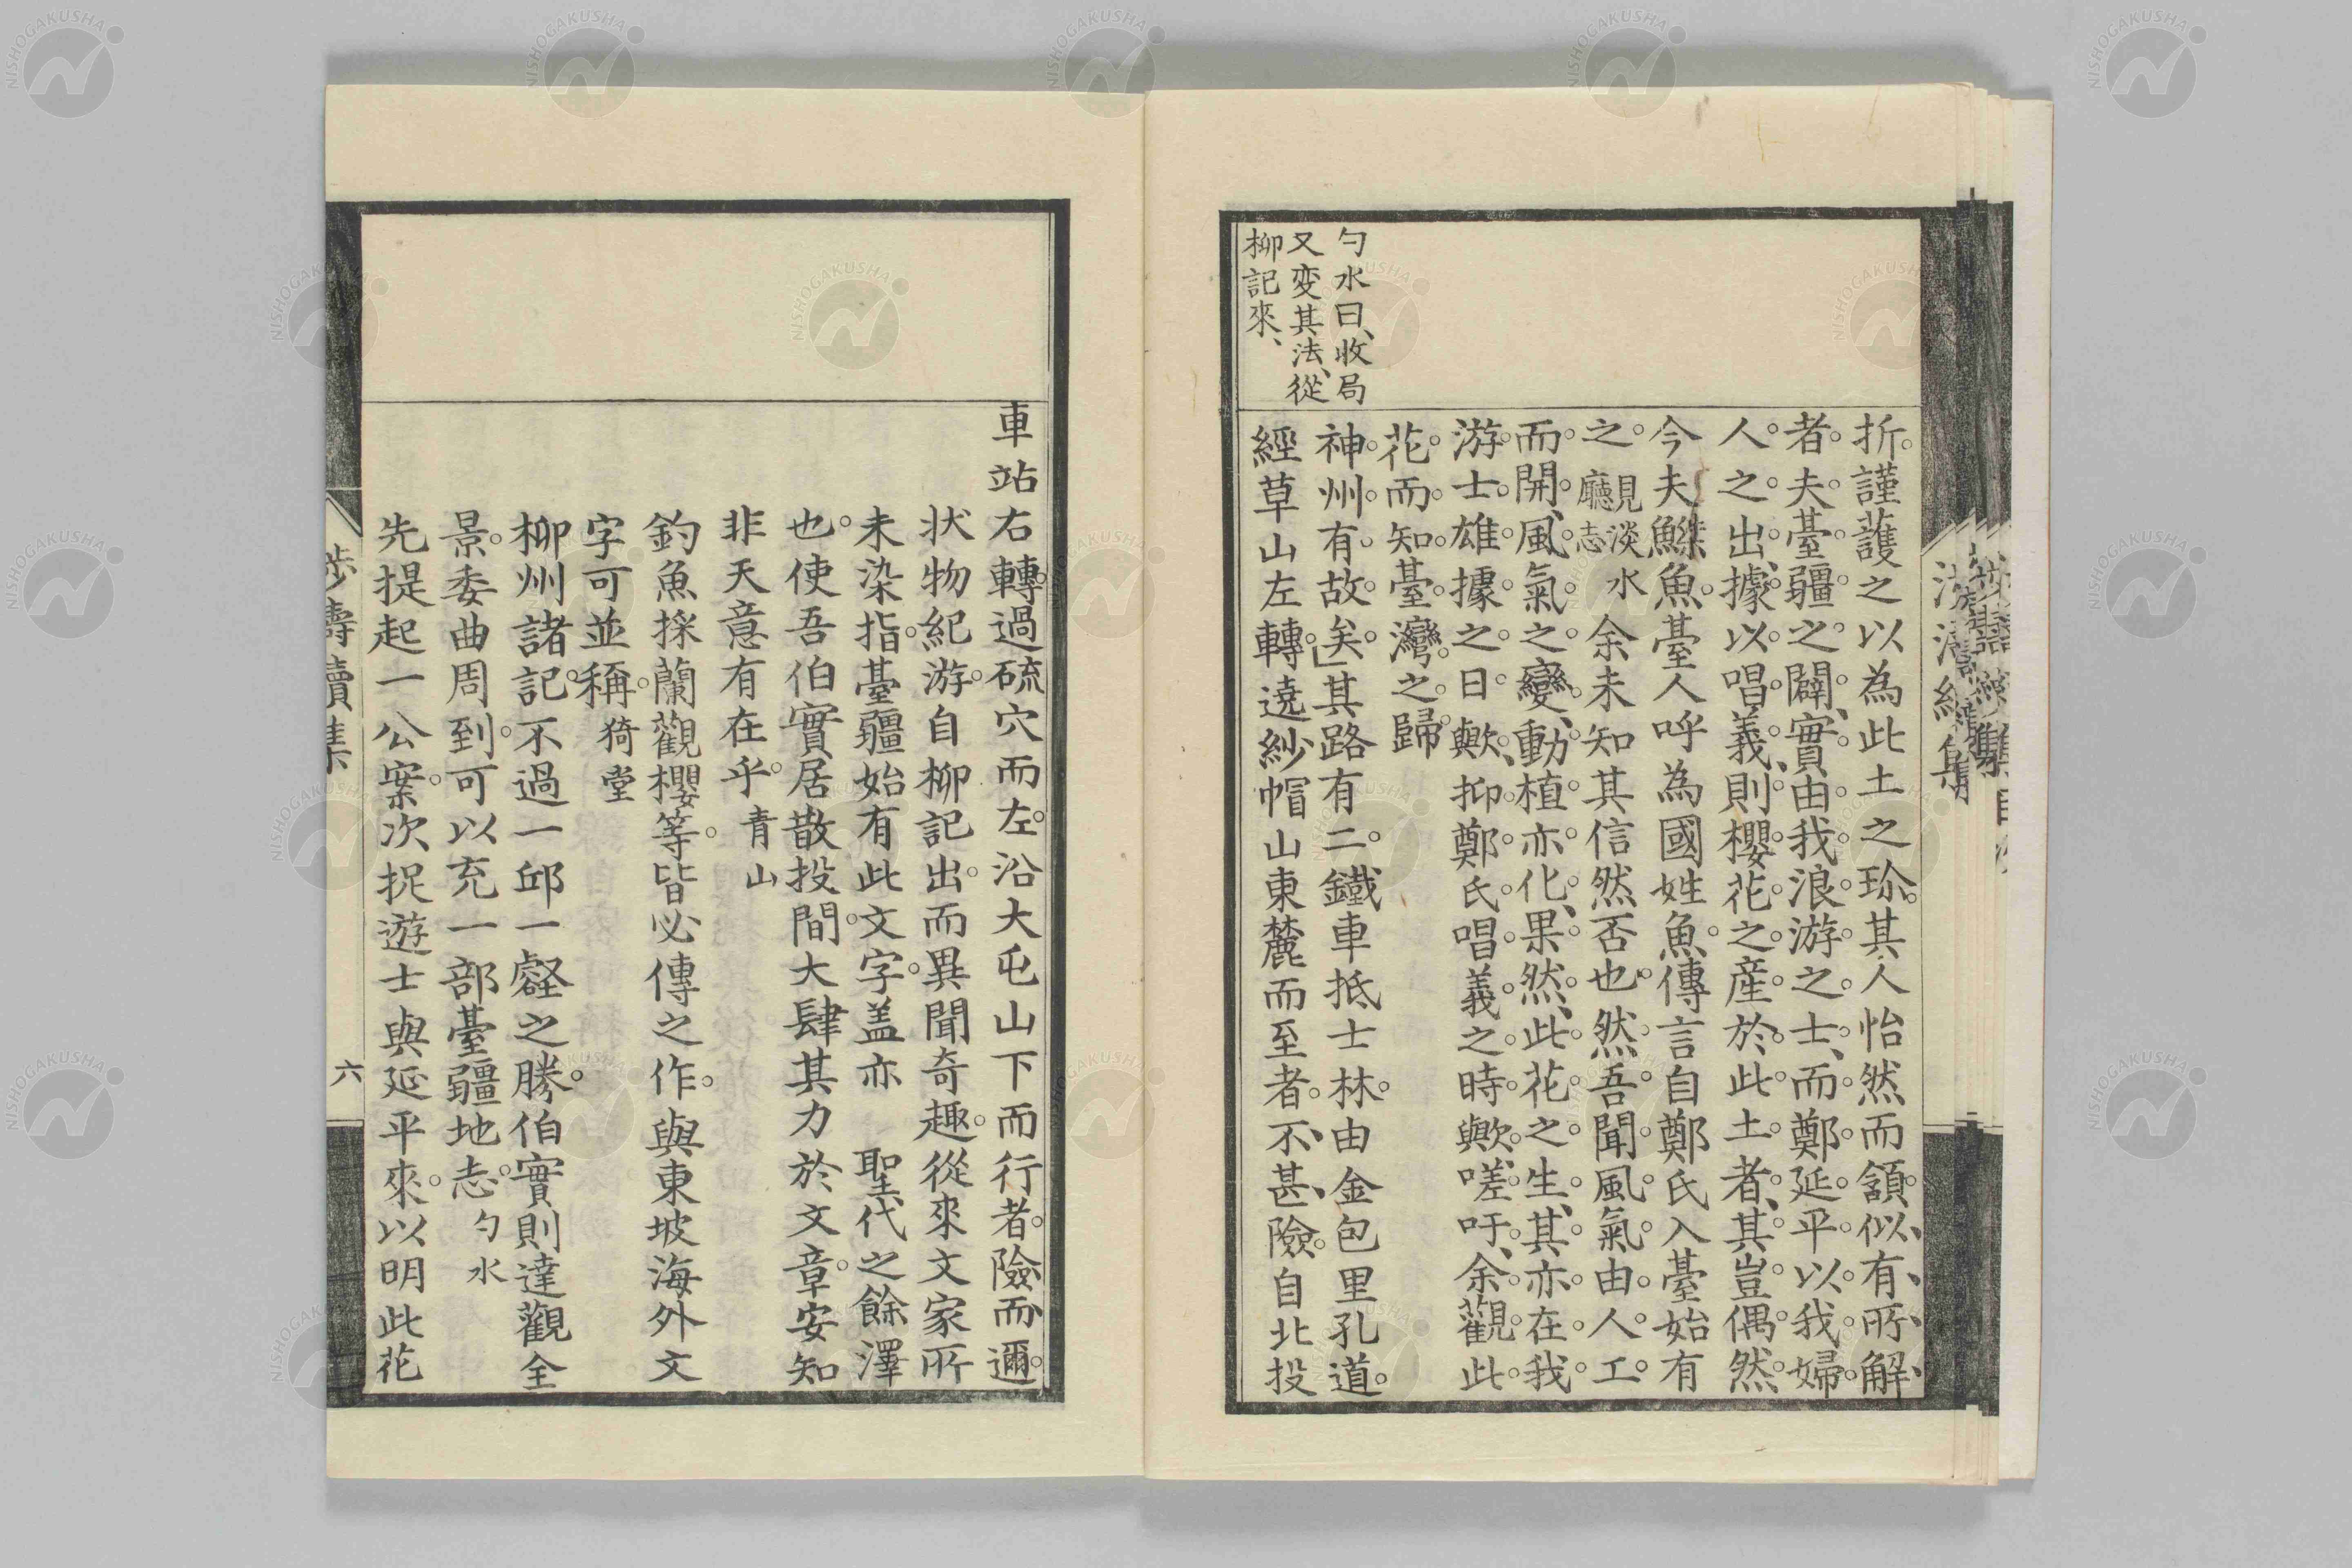 折。謹護之以為此土之珎。其人怡然而頷。似有所解
者。夫臺疆之闢、實由我浪游之士、而鄭延平以我婦
人之出、據以唱義、則櫻花之産於此土者、其豈偶然
今夫鱳魚。臺人呼為國姓魚。傳言自鄭氏入臺始有
之。見淡水廳志余未知其信然否也。然吾聞風氣由人工
而開、風氣之變、動植亦化、果然、此花之生、其亦在我
游士雄據之日歟、抑鄭氏唱義之時歟。嗟吁、余觀此
花而知臺灣之歸
神州有故矣」其路有二。鐵車抵士林。由金包里孔道。
經草山左轉。遶紗帽山東麓而至者。不甚險。自北投
勺水曰、收局
又変其法、從
柳記來、
車站右轉。過硫穴而左。沿大屯山下而行者。險而邇。
狀物紀游。自柳記出。而異聞奇趣。從來文家所
未染指。臺疆始有此文字。盖亦 聖代之餘澤
也。使吾伯實居散投間。大肆其力於文章。安知
非天意有在乎。青山
釣魚採蘭觀櫻等。皆必傳之作。與東坡海外文
字可並稱。猗堂
柳州諸記。不過一邱一壑之勝。伯實則達觀全
景。委曲周到。可以充一部臺疆地志。勺水
先提起一公案。次捉遊士與延平來。以明此花
六